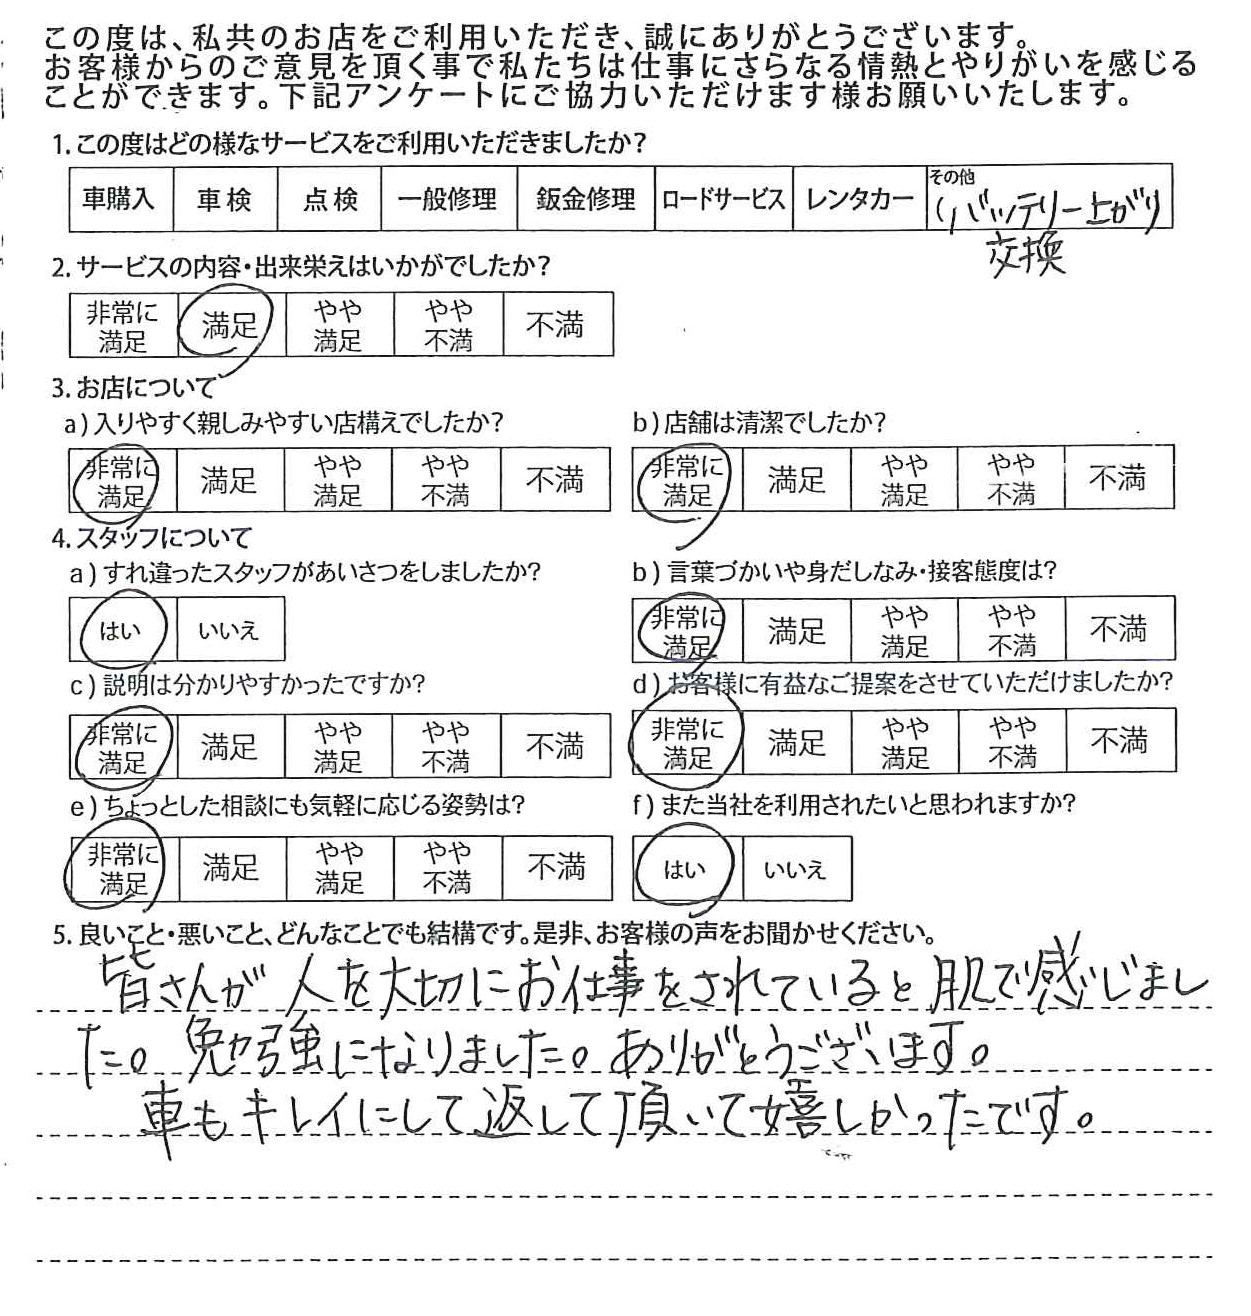 この度は、私共のお店をご利用いただき、誠にありがとうございます。
お客様からのご意見を頂く事で私たちは仕事にさらなる情熱とやりがいを感じる
ことができます。下記アンケートにご協力いただけます様お願いいたします。
1.この度はどの様なサービスをご利用いただきましたか?
車購入 車検 点検 一般修理 鈑金修理 ロードサービス レンタカー その他
(バッテリー上がり)
交換
2.サービスの内容・出来栄えはいかがでしたか?
非常に満足 満足 やや満足 やや不満 不満
3.お店について
a)入りやすく親しみやすい店構えでしたか? b)店舗は清潔でしたか?
非常に満足 満足 やや満足 やや不満 不満 非常に満足 満足 やや満足 やや不満 不満
4.スタッフについて
a)すれ違ったスタッフがあいさつをしましたか? b)言葉づかいや身だしなみ・接客態度は?
はい いいえ 非常に満足 満足 やや満足 やや不満 不満
c)説明は分かりやすかったですか? d)お客様に有益なご提案をさせていただけましたか?
非常に満足 満足 やや満足 やや不満 不満 非常に満足 満足 やや満足 やや不満 不満
e)ちょっとした相談にも気軽に応じる姿勢は? f)また当社を利用されたいと思われますか?
非常に満足 満足 やや満足 やや不満 不満 はい いいえ
5.良いこと・悪いこと、どんなことでも結構です。是非、お客様の声をお聞かせください。
皆さんが人を大切にお仕事をされていると肌で感じまし
た。勉強になりました。ありがとうございます。
車もキレイにして返して頂いて嬉しかったです。